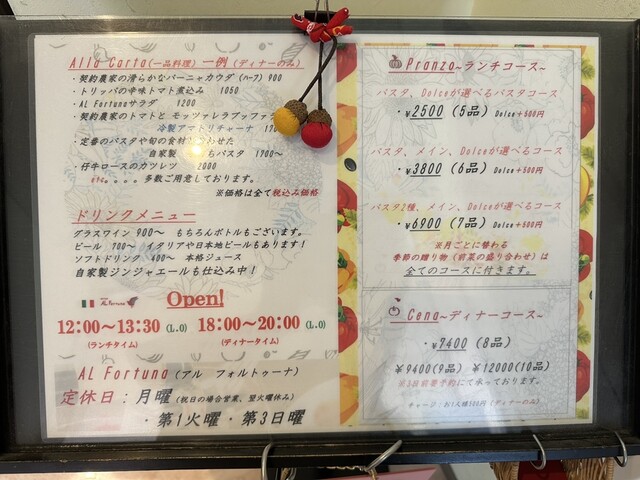 Alla Carta(一品料理) 一例 (ディナーのみ)
・契約農家の滑らかなバーニャカウダ(ハーフ) 900
・トリッパの辛味トマト煮込み 1050
・AL Fortunaサラダ 1200
・契約農家のトマトと モッツァレラブッファ
冷製アマトリチャーナ
・定番のパスタや旬の食材
自家製 パスタ 1700〜
・仔牛ロースのカツレツ 2000
etc。。。。多数ご用意しております。
※価格は全て税込み価格
ドリンクメニュー
グラスワイン 900〜 もちろんボトルもございます。
ビール 700〜 イタリアや日本地ビールもあります!
ソフトドリンク 400〜 本格ジュース
自家製ジンジャエールも仕込み中!
AL Fortuna Open!
12:00〜13:30(L.O) 18:00〜20:00(L.O)
(ランチタイム) (ディナータイム)
AL Fortuna(アル フォルトゥーナ)
定休日:月曜(祝日の場合営業、翌火曜休み)
・第1火曜・第3日曜
Pranzo~ランチコース~
パスタ、Dolceが選べるパスタコース
・¥2500 (5品) Dolce+500円
パスタ、メイン、Dolceが選べるコース
・¥3800 (6品) Dolce+500円
パスタ2種、メイン、Dolceが選べるコース
・¥6900 (7品) Dolce+500円
※月ごとに替わる
季節の贈り物 (前菜の盛り合わせ)は
全てのコースに付きます。
Cena~ディナーコース~
・¥7400 (8品)
¥9400(9品) ¥12000(10品)
※3日前要予約にて承っております。
チャージ:お1人様500円 (ディナーのみ)